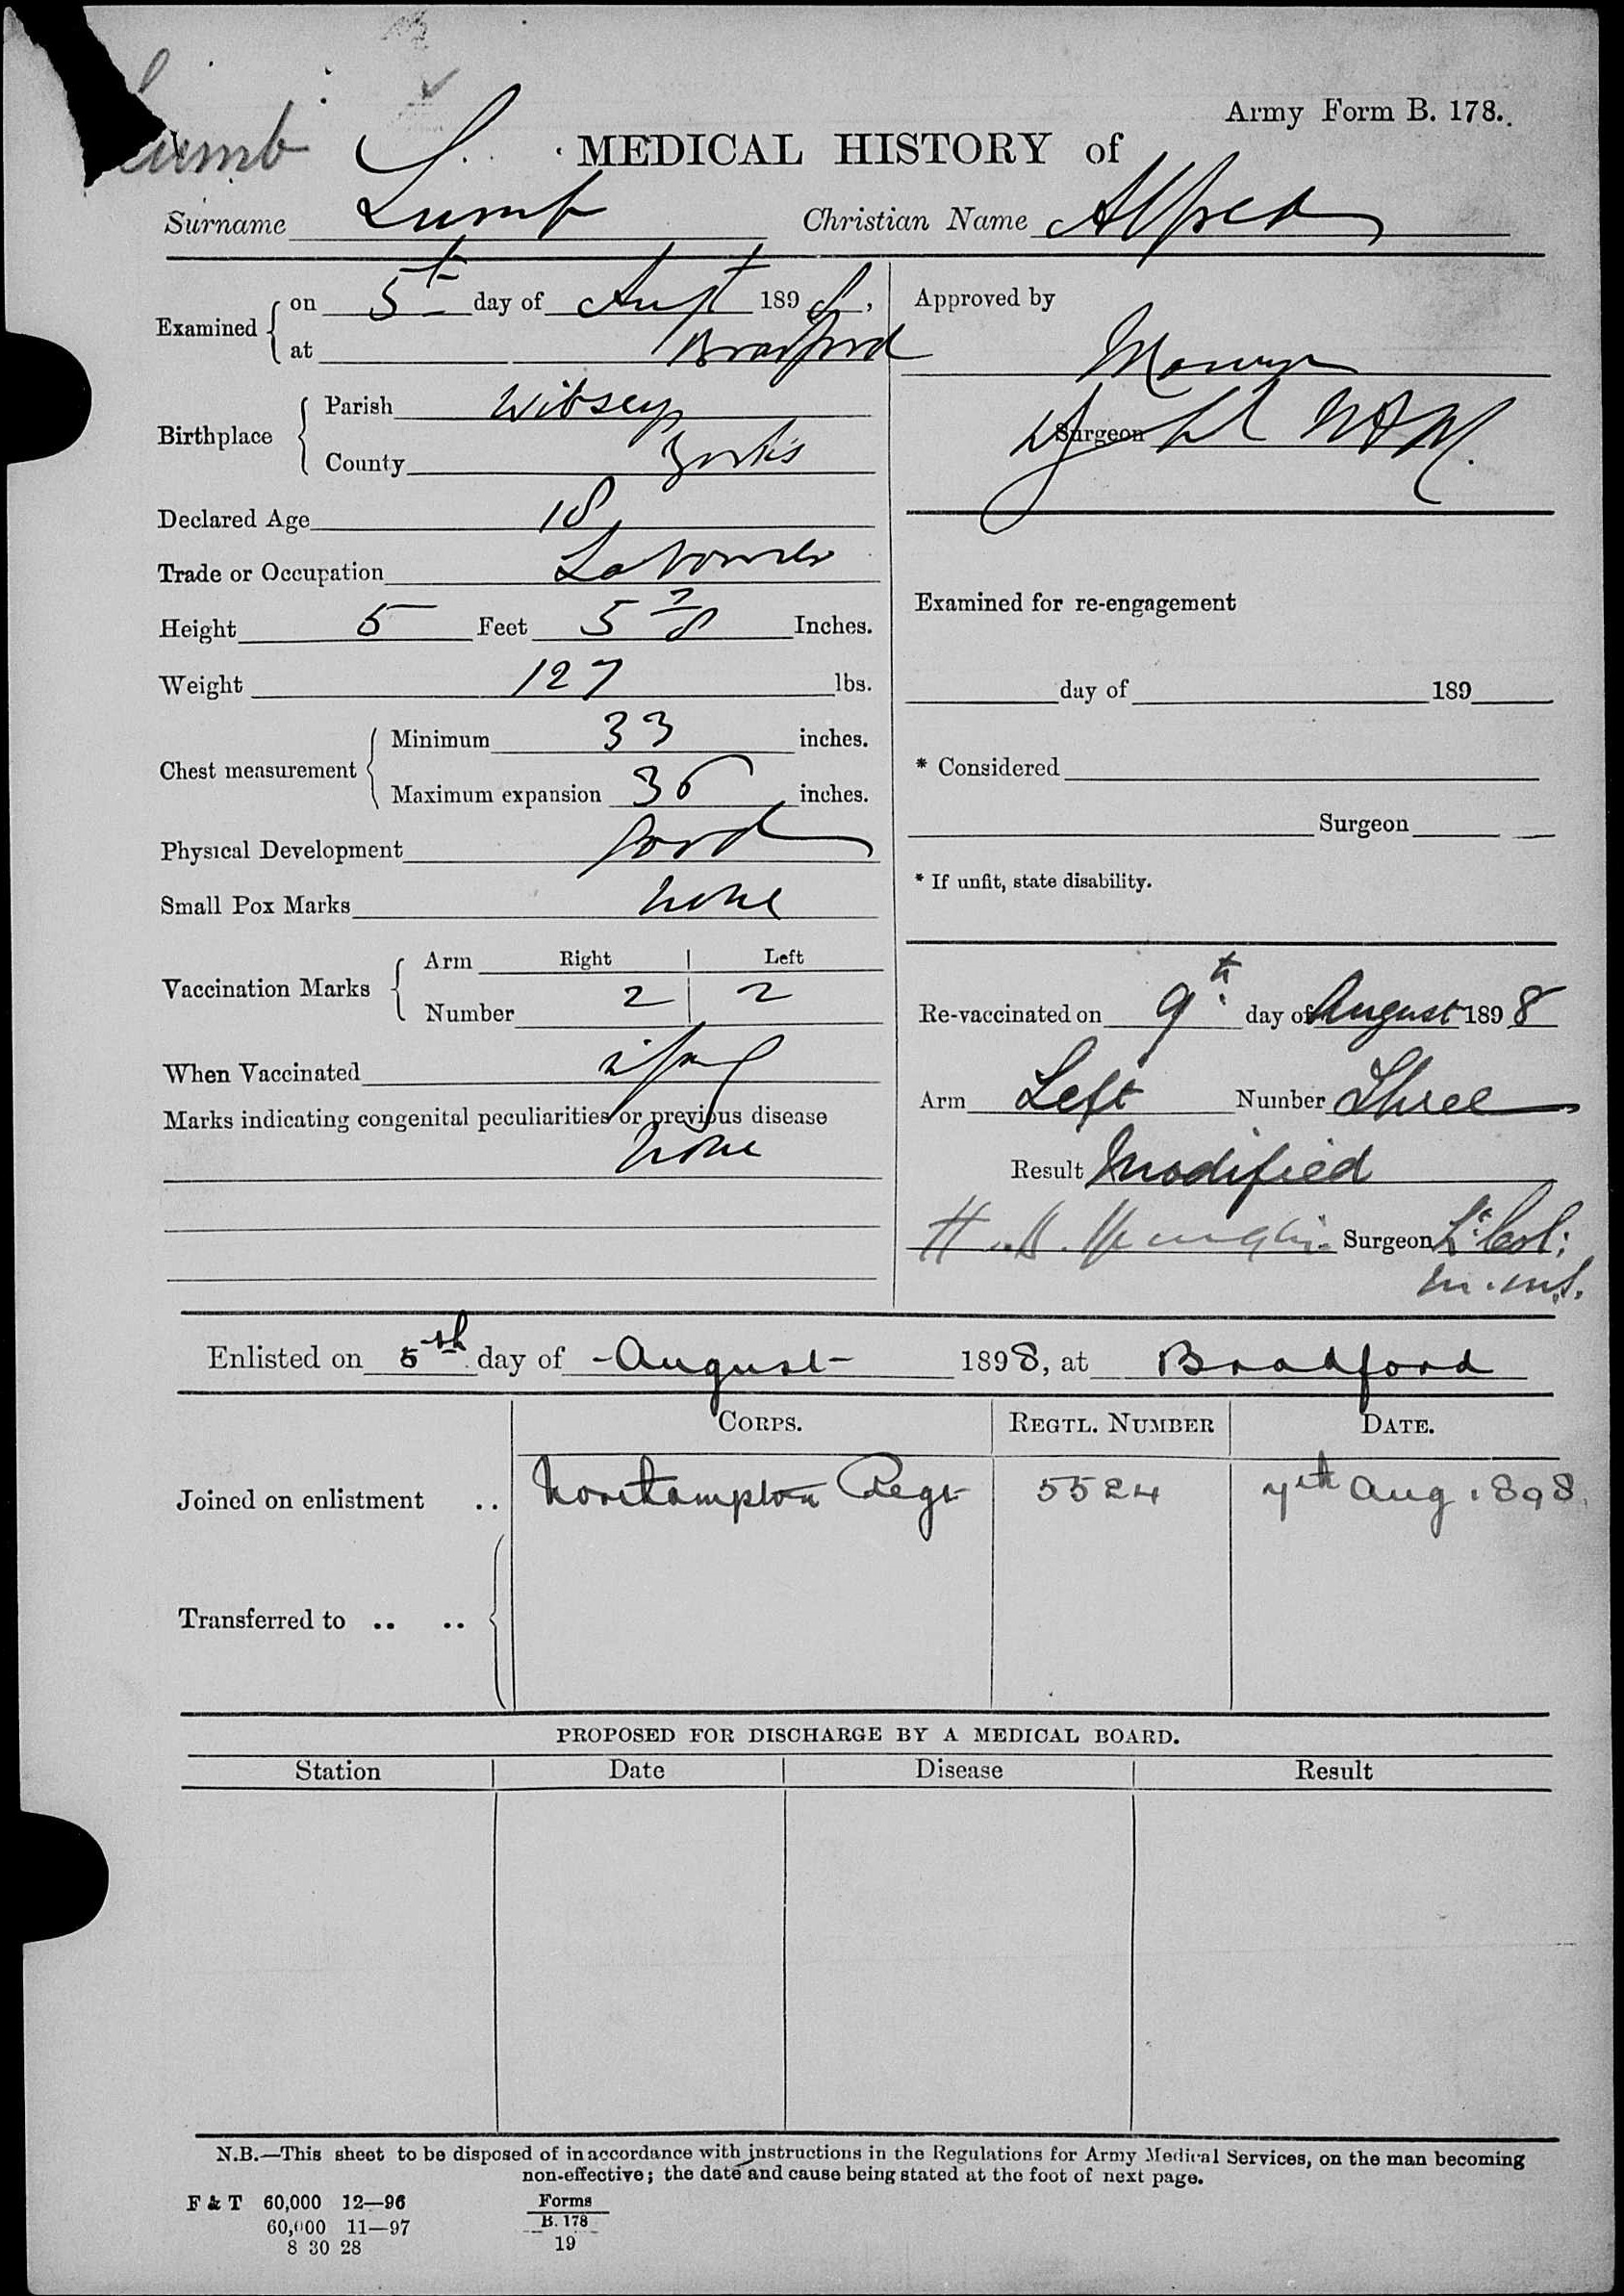 Lumb
Army Form B. 178.
MEDICAL HISTORY of
Surname Lumb Christian Name Alfred
Examined on 5th day of Augt 1898,
at Bradford
Approved by
Birthplace Parish Wibsey
County Yorks
Surgeon
Declared Age 18
Trade or Occupation Labourer
Height 5 Feet 5 7/8 Inches.
Examined for re-engagement
Weight 127 lbs.
day of 189
Chest measurement Minimum 33 inches.
Maximum expansion 36 inches.
* Considered
Surgeon
Physical Development Good
* If unfit, state disability.
Small Pox Marks none
Vaccination Marks Arm Right Left
Number 2 2
Re-vaccinated on 9th day of August 1898
When Vaccinated
Arm Left Number Three
Marks indicating congenital peculiarities or previous disease
none
Result Modified
Surgeon Lt. Col:
Enlisted on 5th day of -August- 1898, at Bradford
CORPS. REGTL. NUMBER DATE.
Joined on enlistment .. Northampton Regt 5524 7th Aug 1898.
Transferred to .. ..
PROPOSED FOR DISCHARGE BY A MEDICAL BOARD.
Station Date Disease Result
N.B.—This sheet to be disposed of in accordance with instructions in the Regulations for Army Medical Services, on the man becoming
non-effective; the date and cause being stated at the foot of next page.
F & T 60,000 12—96
60,000 11—97
8 30 28
Forms
B. 178
19